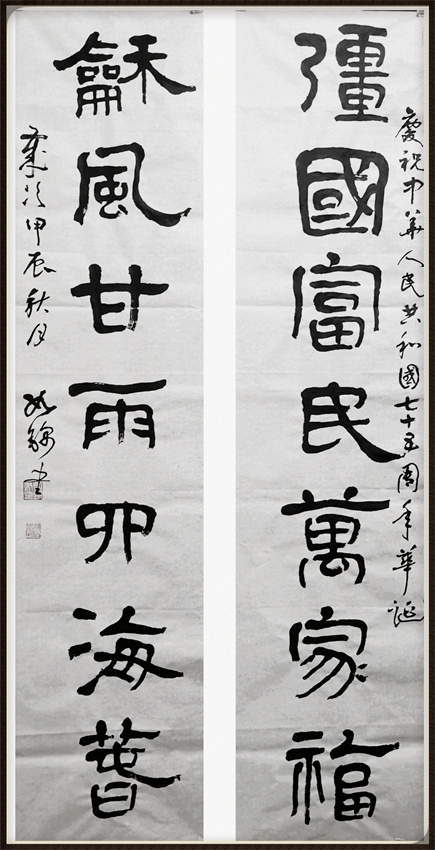 慶祝中華人民共和國七十五周年華誕
彊國富民萬家福
龢風甘雨四海萅
歲次甲辰秋月
錦書